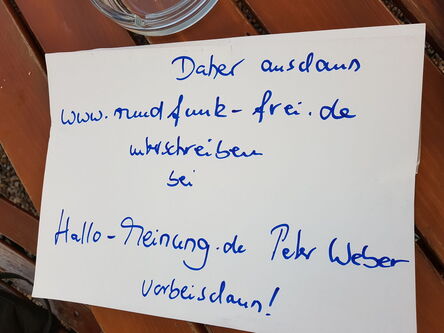 Daher ausdaun
www.rundfunk-frei.de
unterschreiben
bei
Hallo-Meinung.de Peter Weber
vorbeidaun!